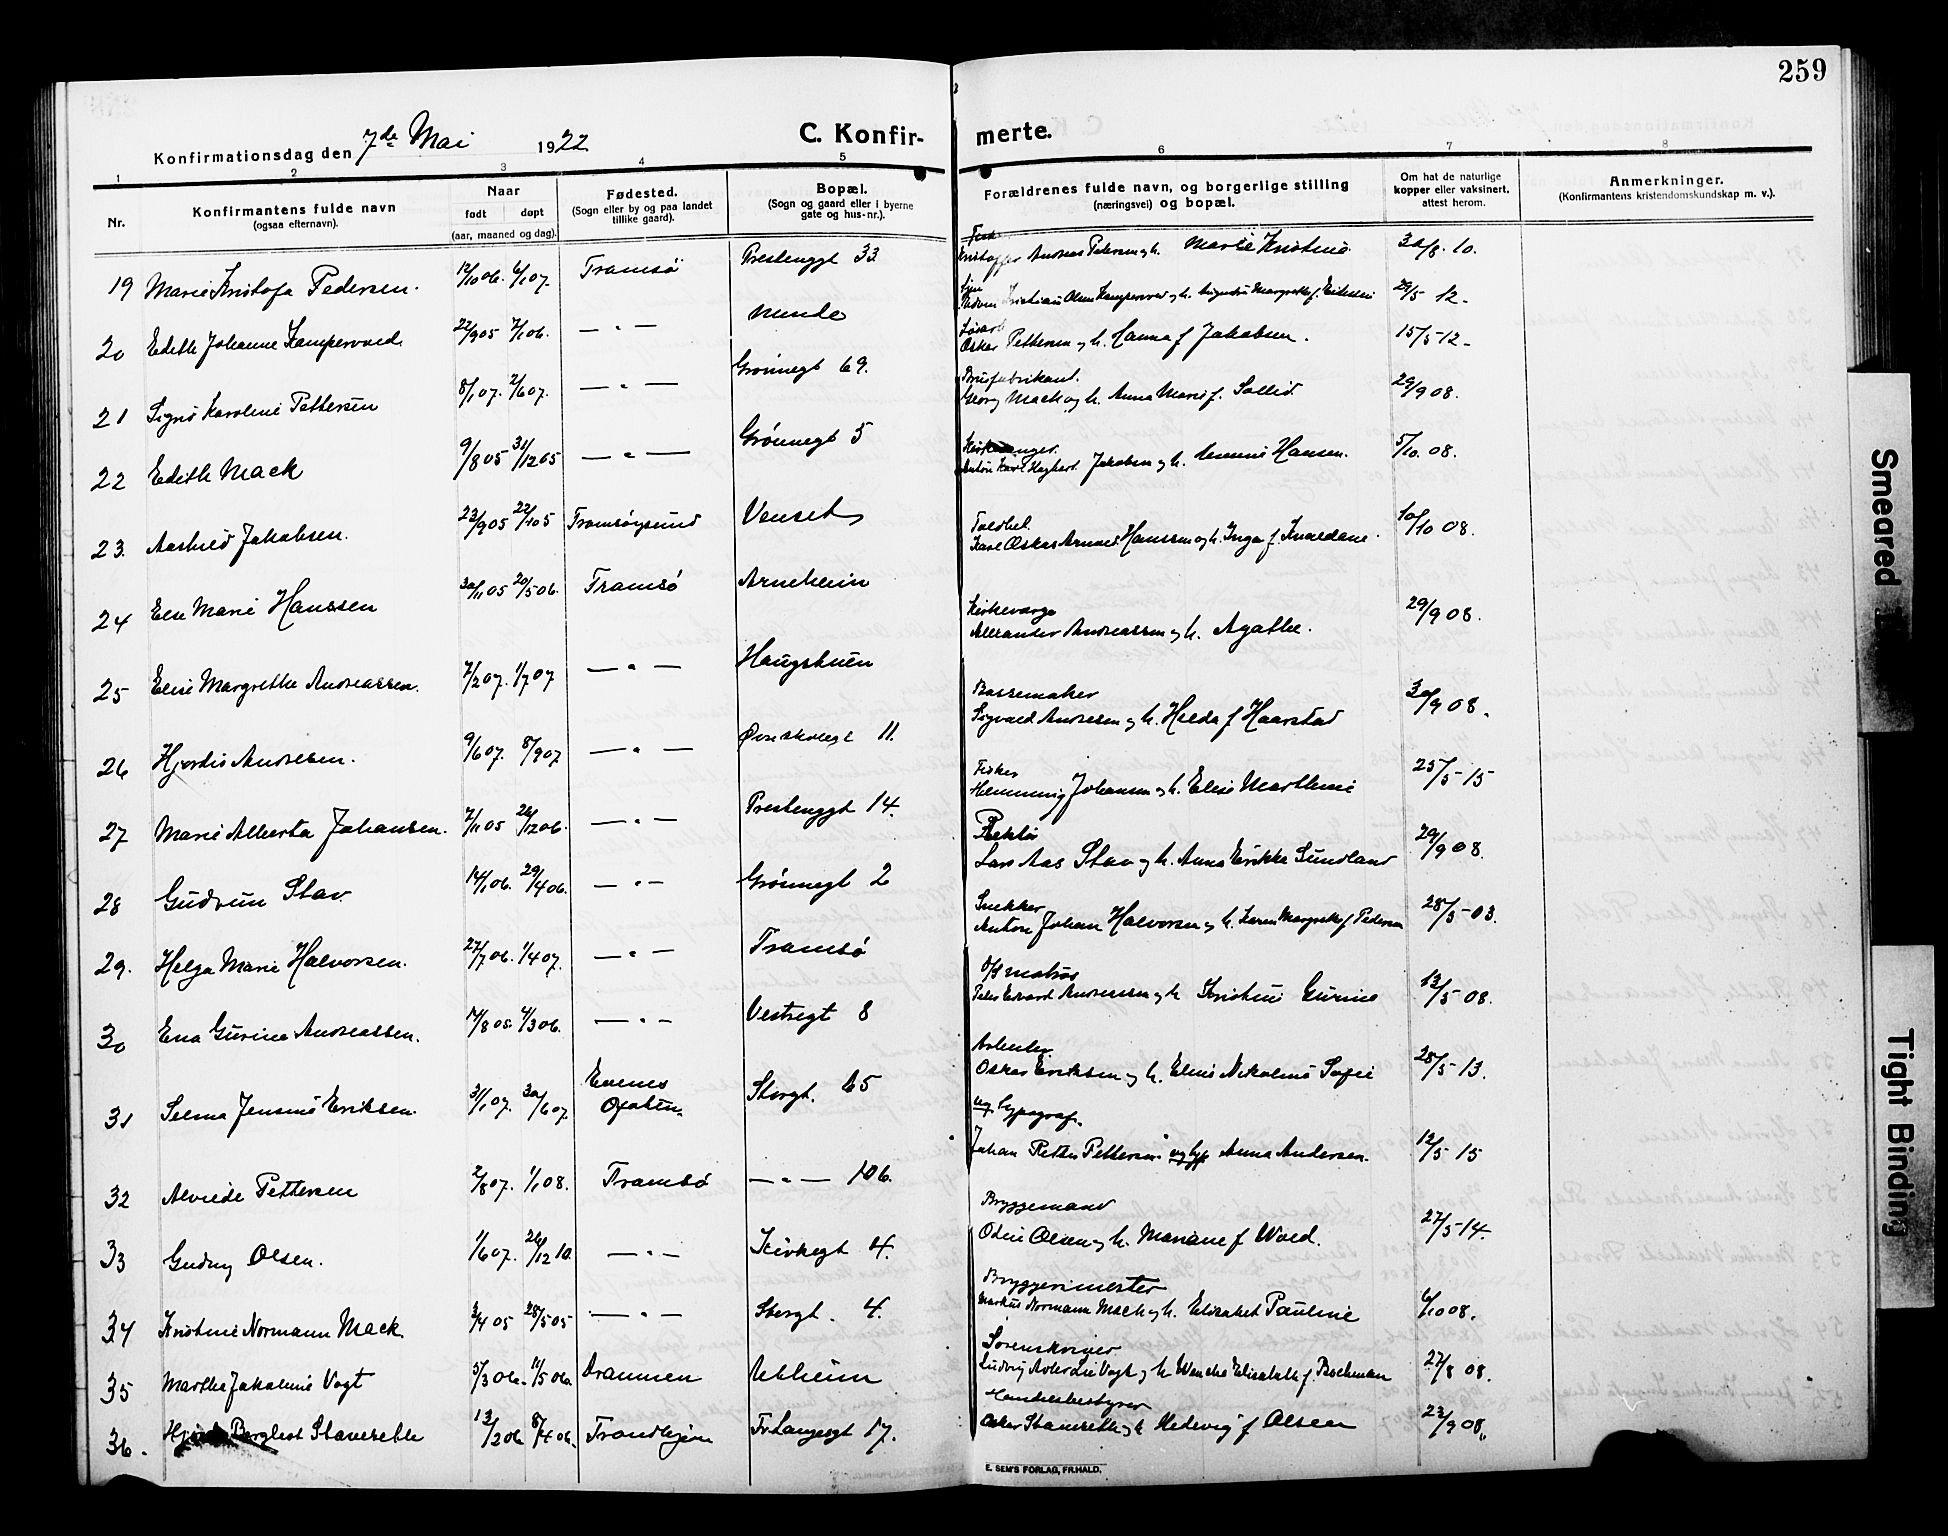 259
Konfirmationsdag den 7de Mai 1922
C. Konfirmerte.
1 2 3 4 5 6 7 8
Nr.
Konfirmantens fulde navn
(ogsaa efternavn).
Naar
født døpt
(aar, maaned og dag).
Fødested.
(Sogn eller by og paa landet
tillike gaard).
Bopæl.
(Sogn og gaard eller i byerne
gate og hus-nr.).
Forældrenes fulde navn, og borgerlige stilling
(næringsvei) og bopæl.
Om hat de naturlige
kopper eller vaksinert,
attest herom.
Anmerkninger.
(Konfirmantens kristendomskundskap m. v.).
19 Marie Kristofa Pedersen. 12/10 06. 6/1 07. Tromsø Prestenggt 33 Kristoffer Andreas Pedersen og h. Marie Kristine 30/8. 10.
20 Edith Johanne Kampevold. 22/9 05 7/1 06. — " — Minde Kristian Olsen Kampevold og h. Margrethe f. Eriksen 29/5 12.
21 Signe Karoline Pettersen 8/1 07. 2/6 07. — " — Grønnegt 69. Løsarb Oskar Pettersen og h. Hanna f Jakobsen. 15/5-12.
22 Edith Mack 9/8 05 31/12 05 — " — Grønnegt 5 Brusfabrikant. Georg Mack og h. Anna Marie f. Sollid. 29/9 08.
23. Aashild Jakobsen. 23/9 05 22/10 5 Tromsøysund Venset Anton Karl Hagbart Jakobsen og h. Hansen. 5/10. 08.
24 Else Marie Hanssen 30/11 05 20/5 06. Tromsø Arneheim Toldbet. Karl Oskar Arnold Hanssen og h. Inga f. Kvaldane. 10/10 08.
25 Elise Margrethe Andreassen. 7/2 07. 1/7 07 — " — Haugstuen Kirkeverge Alexander Andreassen og h. Agathe. 29/9 08.
26 Hjørdis Andresen. 9/6 07. 8/9 07 — " — 11. Børsemaker Sigvald Andresen og h. Hilda f Haarstad 30/9 08.
27 Marie Alberta Johansen. 7/11 05 26/12 06. — " — Prestenggt 14. Fisker Hemming Johansen og h. Elise Marthine 25/5-15
28 Gudrun Stav 14/1 06. 29/4 06. — " — Grønnegt 2 Rektor Lars Aas Stav og h. Anna Erikke Sundland 29/9 08.
29. Helga Marie Halvorsen. 27/7 06. 1/4 07. — " — Tromsø Snekker Anton Johan Halvorsen og h. Karen Margrethe f Pedersen 28/5-03.
30 Ena Gurine Andreassen. 14/8 05. 4/3 06. — " — Vestregt 8 matros Peder Edvard Andreassen og h Kristine Gurine 13/5-08.
31 Selma Jensine Eriksen. 3/1 07. 30/6 07. Evenes Ofoten. Storgt. 65 Arbeider Oskar Eriksen og h. Eline Nikoline Sofie 28/5-13.
32 Alvilde Pettersen 2/8 07. 1/1 08. Tromsø — " — 106. ug. typograf. Johan Petter Pettersen og ug. Anna Andersen. 12/5-15
33 Gudny Olsen. 1/6 07. 26/12 10. — " — Kirkegt 4. Bryggemand Odin Olsen og h. Mariane f Wold. 27/5-14.
34 Kristine Normann Mack. 3/4 05 28/5 05 — " — Storgt. 4. Bryggerimester Markus Normann Mack og h. Elisabet Pauline 6/10 08.
35 Marthe Jakobine Vogt 5/3 06. 11/5 06. Drammen Utheim Sorenskriver Ludvig Adler Lie Vogt og h Wenche Elisabeth f. Bockman 27/8 08.
36. Bergliot Stavseth 13/2 06 8/4 06. Trondhjem Fr. Langesgt 17. Handelsbestyrer Stavseth og h Hedevig f Olsen 23/9 08.
E. SEM'S FORLAG, FR.HALD.
Smeared
Tight Binding